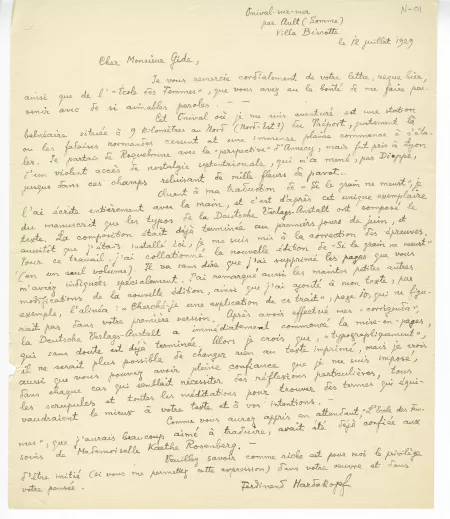 Onival-sur-mer
N-01
par Ault (Somme)
Villa Biscotte
le 12 juillet 1929
Cher Monsieur Gide,
Je vous remercie cordialement de votre lettre, reçue hier,
ainsi que de l'"Ecole des Femmes", que vous avez eu la bonté de me faire par-
venir avec de si aimables paroles. —
Cet Onival où je me suis aventuré est une station
balnéaire située à 9 kilomètres au Nord (Nord-Est?) du Tréport, justement là
où les falaises normandes cessent et une immense plaine commence à s'éta-
ler. Je partais de Roquebrune avec la "perspective" d'Annecy, mais fut pris à Lyon
d'un violent accès de nostalgie septentrionale, qui m'a mené, par Dieppe,
jusque dans ces champs reluisant de mille fleurs de pavot. —
Quant à ma traduction de "Si le grain ne meurt", je
l'ai écrite entièrement avec la main, et c'est d'après cet unique exemplaire
du manuscrit que les typos de la Deutsche Verlags-Anstalt ont composé le
texte. La composition était déjà terminée au premiers jours de juin, et
aussitôt que j'étais installé ici, je me suis mis à la correction des épreuves.
Pour ce travail, j'ai collationné la nouvelle édition de "Si le grain ne meurt"
(en un seul volume). Il va sans dire que j'ai supprimé les pages que vous
m'avez indiquées spécialement. J'ai remarqué aussi les maintes petites autres
modifications de la nouvelle édition, ainsi que j'ai ajouté à mon texte, par
exemple, l'alinéa: "Cherché-je une explication de ce trait", page 10, qui ne figu-
rait pas dans votre première version. Après avoir effectué mes "corrigenda",
la Deutsche Verlags-Anstalt a immédiatement commencé la mise-en-pages,
qui sans doute est déjà terminée. Alors je crois que, "typographiquement",
il ne serait plus possible de changer rien au texte imprimé, mais je crois
aussi que vous pouvez avoir pleine confiance que je me suis imposé,
dans chaque cas qui semblait nécessiter des réflexions particulières, tous
les scrupules et toutes les méditations pour trouver des termes qui équi-
vaudraient le mieux à votre texte et à vos intentions. —
Comme vous aurez appris en attendant, "l'Ecole des Fem-
mes", que j'aurais beaucoup aimé à traduire, avait été déjà confiée aux
soins de Mademoiselle Kaethe Rosenberg. —
Veuillez savoir comme riche est pour moi le privilège
d'être initié (si vous me permettez cette expression) dans votre œuvre et dans
votre pensée.
Ferdinand Hardekopf